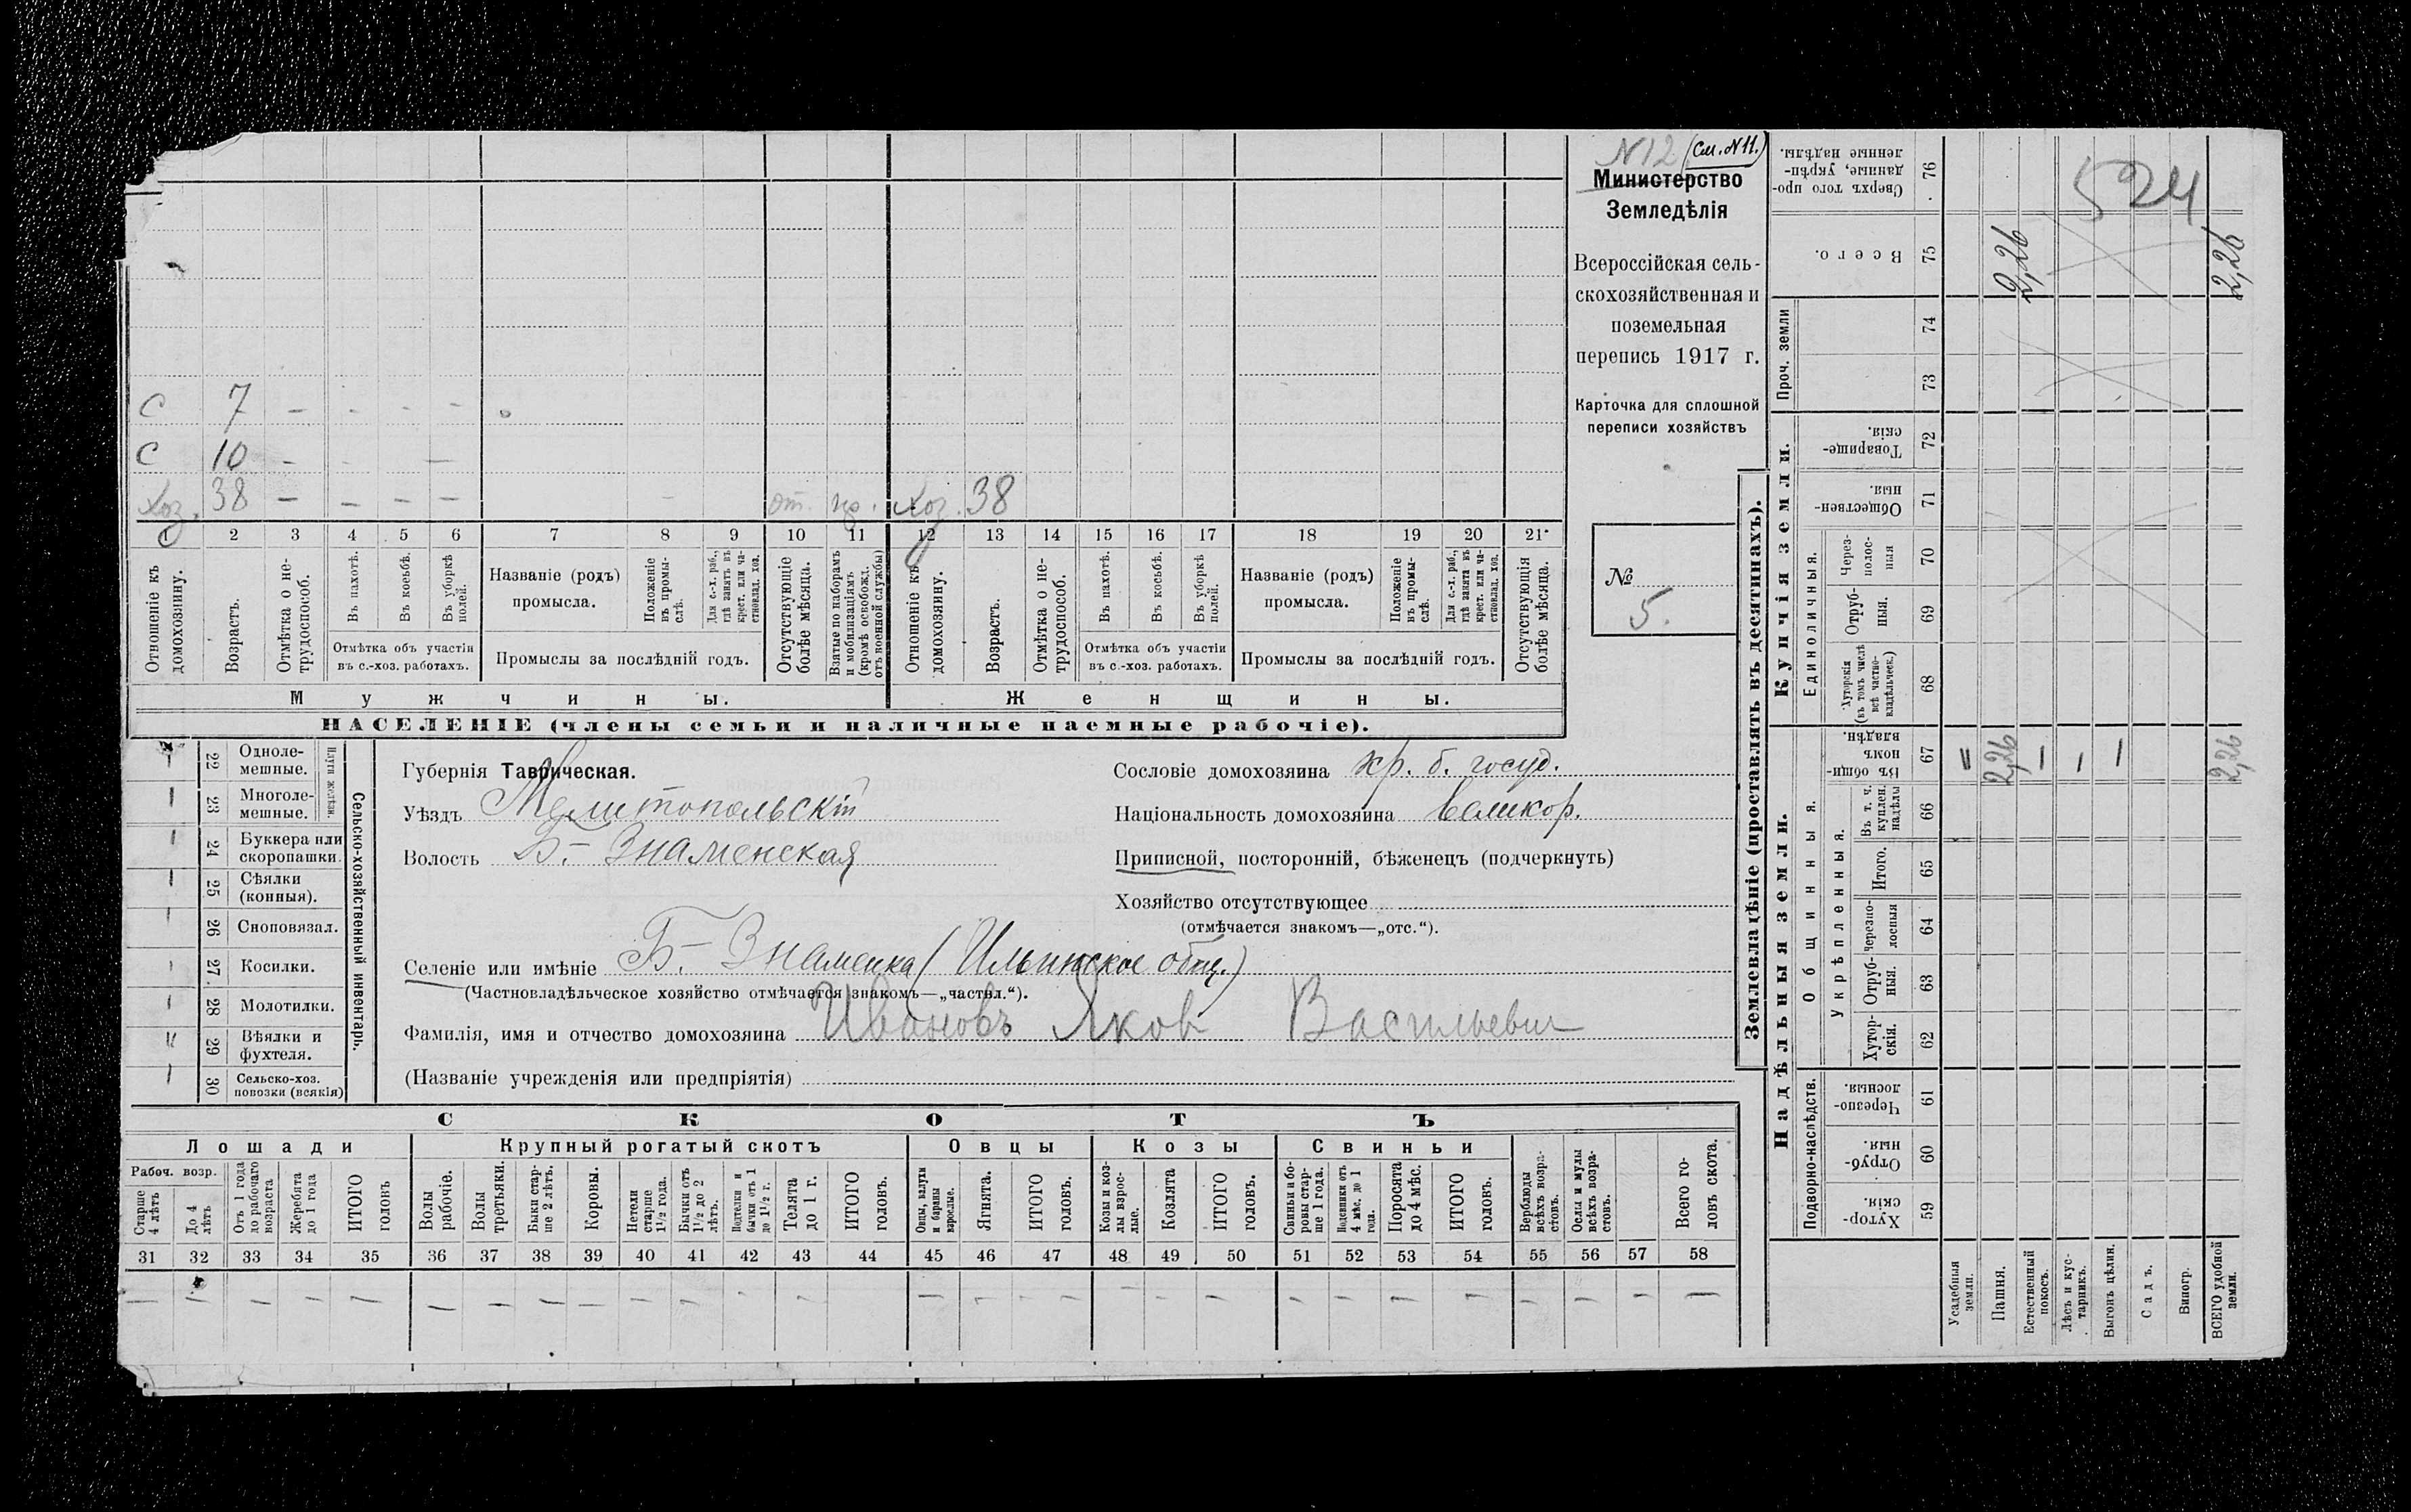 N12 (См. N11.)
Министерство
Земледѣлія
Всероссійская сель-
скохозяйственная и
поземельная
перепись 1917 г.
Карточка для сплошной
переписи хозяйствъ
№
5.
С 7 — - - -
С 10 - - —
Хоз. 38 — — — — — от. Хоз. 38
1 2 3 4 5 6 7 8 9 10 11 12 13 14 15 16 17 18 19 20 21
Отношеніе къ домохозяину.
Возрастъ.
Отмѣтка о не-трудоспособ.
Въ пахотѣ.
Въ косьбѣ.
Въ уборкѣ полей.
Отмѣтка объ участіи
въ с.-хоз. работахъ.
Названіе (родъ)
промысла.
Положеніе въ промы-слѣ.
Для с.-х. раб., гдѣ занятъ въ крест. или ча-стновлад. хоз.
Промыслы за послѣдній годъ.
Отсутствующіе болѣе мѣсяца.
Взятые по наборамъ и мобилизаціямъ (кромѣ освобожд. отъ военной службы)
Отношеніе къ домохозяину.
Возрастъ.
Отмѣтка о не-трудоспособ.
Въ пахотѣ.
Въ косьбѣ.
Въ уборкѣ полей.
Отмѣтка объ участіи
въ с.-хоз. работахъ.
Названіе (родъ)
промысла.
Положеніе въ промы-слѣ.
Для с.-х. раб., гдѣ занята въ крест. или ча-стновлад. хоз.
Промыслы за послѣдній годъ.
Отсутствующія болѣе мѣсяца.
Мужчины.
Женщины.
НАСЕЛЕНІЕ (члены семьи и наличные наемные рабочіе).
22 Одноле-мешные.
23 Многоле-мешные.
Плуги желѣзн.
24 Буккера или скоропашки.
25 Сѣялки (конныя).
26 Сноповязал.
27 Косилки.
28 Молотилки.
29 Вѣялки и фухтеля.
30 Сельско-хоз. повозки (всякія)
Сельско-хозяйственный инвентарь.
Губернія Таврическая.
Уѣздъ Мелитопольскій
Волость Б.-Знаменская
Сословіе домохозяина кр. б. госуд.
Національность домохозяина великор.
Приписной, посторонній, бѣженецъ (подчеркнуть)
Хозяйство отсутствующее
(отмѣчается знакомъ—„отс.“).
Селеніе или имѣніе Б.-Знаменка (Ильинское общ.)
(Частновладѣльческое хозяйство отмѣчается знакомъ—„частвл.“).
Фамилія, имя и отчество домохозяина Ивановъ Яков Васильевич
(Названіе учрежденія или предпріятія)
СКОТЪ
Лошади
Крупный рогатый скотъ
Овцы
Козы
Свиньи
Рабоч. возр.
Старше 4 лѣтъ
До 4 лѣтъ
Отъ 1 года до рабочаго возраста
Жеребята до 1 года
ИТОГО головъ
Волы рабочіе.
Волы третьяки.
Быки стар-ше 2 лѣтъ.
Коровы.
Нетели старше 1½ года.
Бычки отъ 1½ до 2 лѣтъ.
Подтелки и бычки отъ 1 до 1½ г.
Телята до 1 г.
ИТОГО головъ.
Овцы, валухи и бараны взрослые.
Ягнята.
ИТОГО головъ.
Козы и коз-лы взрос-лые.
Козлята
ИТОГО головъ.
Свиньи и бо-ровы стар-ше 1 года.
Подсвинки отъ 4 мѣс. до 1 года.
Поросята до 4 мѣс.
ИТОГО головъ.
Верблюды всѣхъ возра-стовъ.
Ослы и мулы всѣхъ возра-стовъ.
Всего го-ловъ скота.
31 32 33 34 35 36 37 38 39 40 41 42 43 44 45 46 47 48 49 50 51 52 53 54 55 56 57 58
Землевладѣніе (проставлять въ десятинахъ).
Надѣльныя земли.
Купчія земли.
Проч. земли
Сверхъ того про-данные, укрѣп-ленные надѣлы. 76
524
Всего. 75 2,26 2,26
74
73
Товарище-скія. 72
Обществен-ныя. 71
Единоличныя.
Через-полос-ныя 70
Отруб-ныя. 69
Хуторскія (въ томъ числѣ всѣ частно-владѣльческ.) 68
Общинныя.
Въ общи-номъ владѣн. 67 2,26 2,26
Укрѣпленныя.
Въ т. ч. куплен. надѣлы 66
Итого. 65
Черезпо-лосныя 64
Отруб-ныя. 63
Хутор-скія. 62
Подворно-наслѣдств.
Черезпо-лосныя. 61
Отруб-ныя. 60
Хутор-скія. 59
Усадебныя земли.
Пашня.
Естественный покосъ.
Лѣсъ и кус-тарникъ.
Выгонъ цѣлин.
Садъ.
Виногр.
ВСЕГО удобной земли.